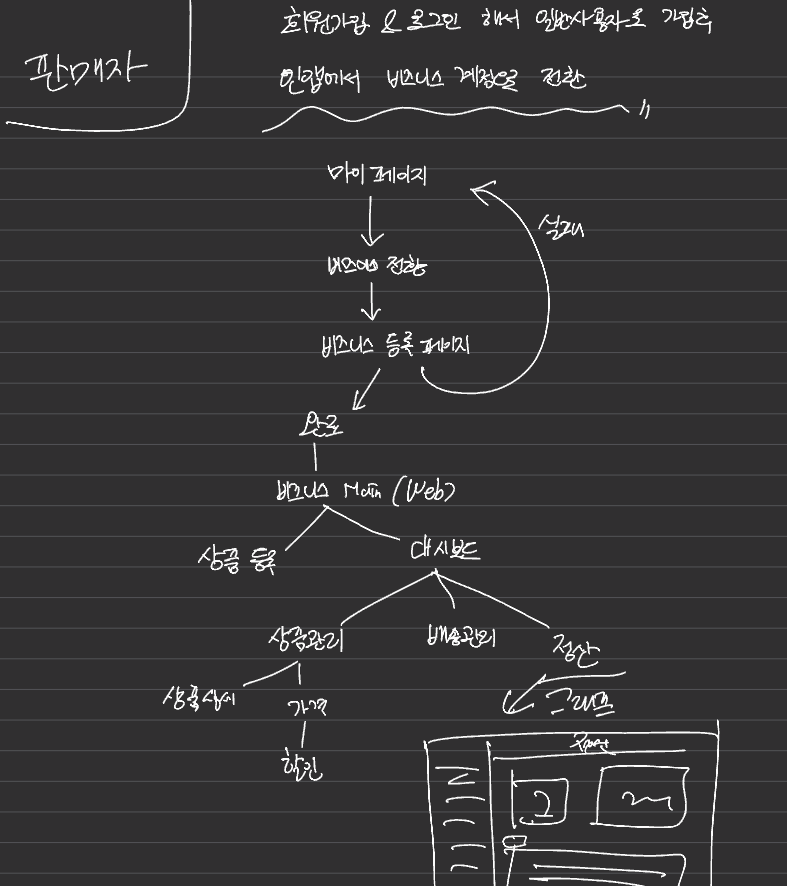 판매자
회원가입 & 로그인 해서 일반사용자로 가입후
인앱에서 비즈니스 계정을 전환
마이 페이지
실패
비즈니스 전환
비즈니스 등록 페이지
완료
비즈니스 Main (Web)
상품 등록
대시보드
상품관리
배송관리
정산
상품상세
가격
그래프
할인